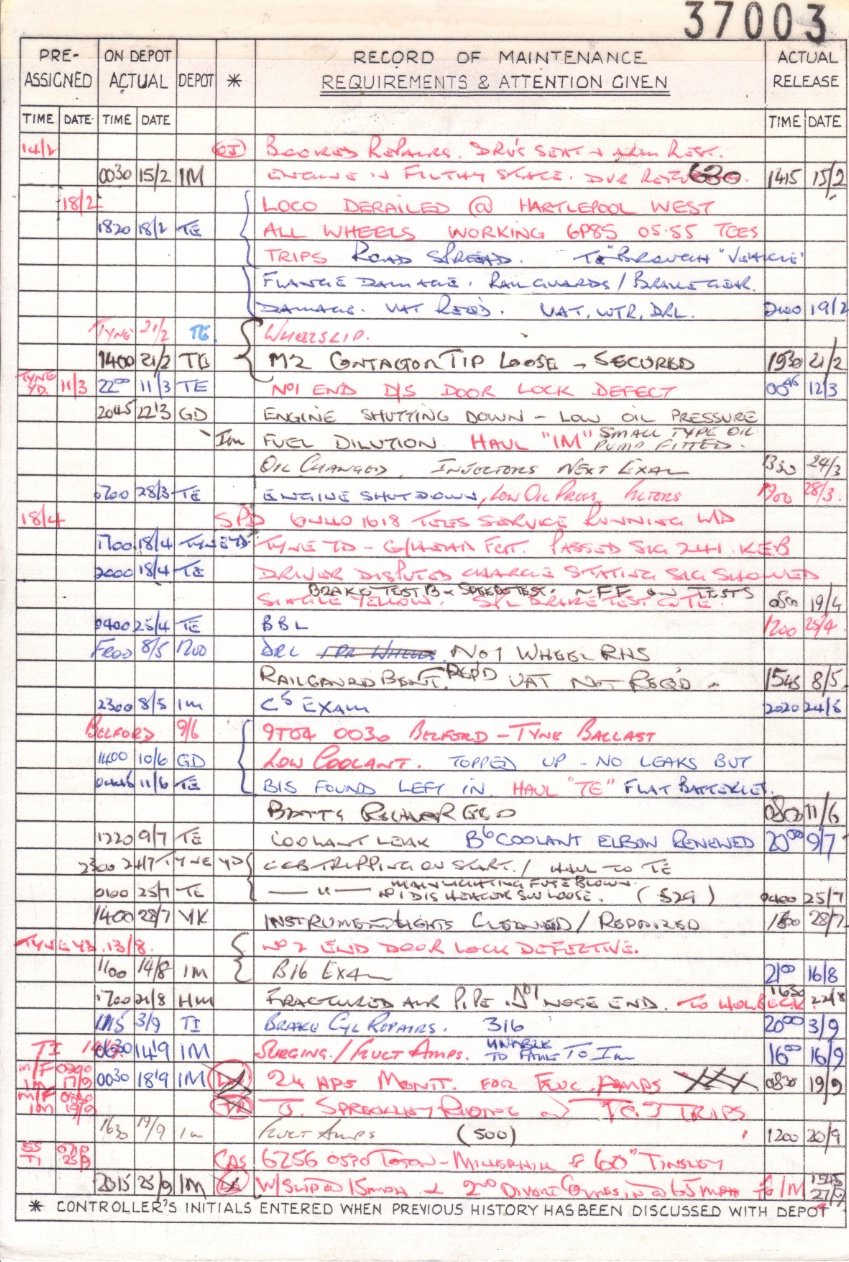 37003
PRE-ASSIGNED ON DEPOT ACTUAL DEPOT * RECORD OF MAINTENANCE REQUIREMENTS & ATTENTION GIVEN ACTUAL RELEASE
TIME DATE TIME DATE TIME DATE
14/2 BOOKED REPAIRS. DRV'S SEAT + ARM REST.
0030 15/2 IM ENGINE IN FILTHY STATE. DVR 1415 15/2
18/2 LOCO DERAILED @ HARTLEPOOL WEST
1820 18/2 TE ALL WHEELS WORKING 6P85 05.55 TEES
TRIPS ROAD SPREAD. TE "BROUGH" VEHICLE'
FLANGE DAMAGE. RAILGUARDS / BRAKE GEAR.
DAMAGE. VAT REQ'D. VAT, WTR, DRL. 2100 19/2
TYNE 21/2 TE. WHEELSLIP.
1400 21/2 TE M2 CONTACTOR TIP LOOSE - SECURED 1530 21/2
TYNE YD. 11/3 2200 11/3 TE NO1 END D/S DOOR LOCK DEFECT 0045 12/3
2045 22'3 GD ENGINE SHUTTING DOWN - LOW OIL PRESSURE
Im FUEL DILUTION HAUL "IM" SMALL TYPE OIL PUMP FITTED.
OIL CHANGED. INJECTORS NEXT EXAM 1330 24/3
0700 28/3 TE ENGINE SHUTDOWN, LOW OIL PRESS, FILTERS 1900 28/3.
18/4 SPD 6N40 1618 TEES SERVICE RUNNING
1700 18/4 TYNE YD TYNE YD - PASSED SIG 241. KEB
2000 18/4 TE DRIVER DISPUTED CHARGE STATING SIG SHOWED
BRAKE TEST B - SPEEDO TEST. - FF ON TESTS
SINGLE YELLOW. SPL BRAKE TEST @ TE 19/4
0400 25/4 TE BBL 1200 25/4
8/5 1700 DRL NO1 WHEEL RHS
RAILGUARD BENT. REP'D VAT NOT REQ'D - 1545 8/5.
2300 8/5 Im C5 EXAM 2020 24/5
BELFORD 9/6 9T04 0030 BELFORD - TYNE BALLAST
1400 10/6 GD LOW COOLANT. TOPPED UP - NO LEAKS BUT
0445 11/6 TE BIS FOUND LEFT IN. HAUL "TE" FLAT BATTERIES.
BATTS RECHARGED 11/6
1220 9/7 TE COOLANT LEAK B6 COOLANT ELBOW RENEWED 2000 9/7
2300 24/7 TYNE YD CCB TRIPPING ON START. / HAUL TO TE
0100 25/7 TE — " — MAIN LIGHTING FUSE BLOWN. NO1 D/S HEATER SW LOOSE. (529) 0400 25/7
1400 28/7 YK INSTRUMENT LIGHTS CLEANED / REPAIRED 28/7
TYNE YD. 13/8. NO 2 END DOOR LOCK DEFECTIVE.
1100 14/8 IM B16 EXAM 2100 16/8
1700 21/8 HM FRACTURED AIR PIPE. NO1 NOSE END. TO HOLBECK. 1630 22/8
1115 3/9 TI BRAKE CYL REPAIRS. 316 2000 3/9
TI 0030 14'9 IM SURGING. / FLUCT AMPS. UNABLE TO TO Im 1600 16/9
M/F 0200 IM 17/9 0030 18'9 IM 24 HRS MONIT. FOR FLUC. AMPS 0830 19/9
M/F IM 19/9 T. SPRECKLEY RIDING ON TRIPS
1630 19/9 Im FLUCT AMPS (500) 1200 20/9
SS TI 25/9 CAS 6Z56 0530 TOTON - MILLERHILL
2015 25/9 IM W/SLIP @ 15MPH + 2ND DIVERT COMES IN @ 65 MPH 1545 27/9
* CONTROLLER'S INITIALS ENTERED WHEN PREVIOUS HISTORY HAS BEEN DISCUSSED WITH DEPOT